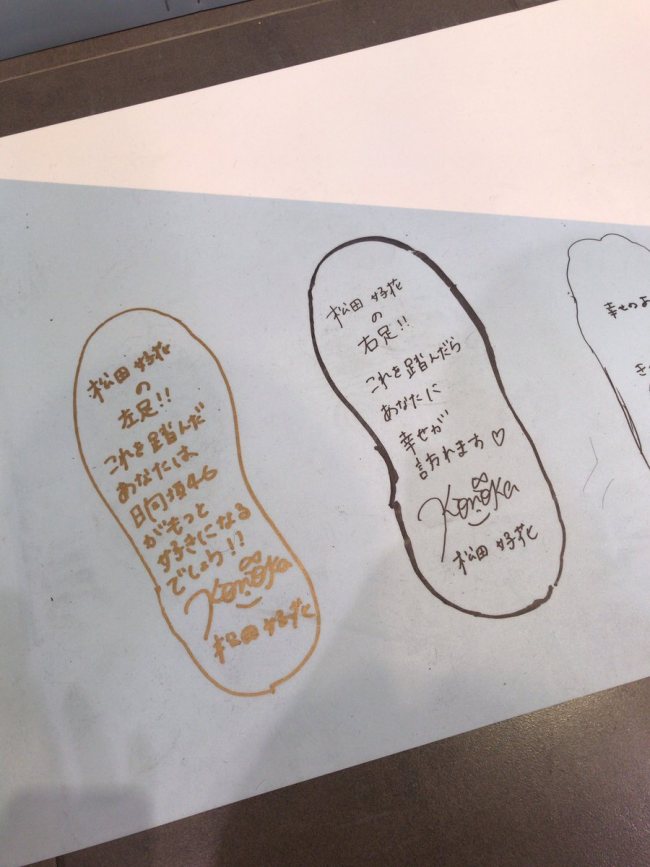 松田好花
の
左足!!
これを踏んだ
あなたは
日向坂46
がもっと
好きになる
でしょう!!
Konoka
松田好花
松田好花
の
右足!!
これを踏んだら
あなたに
幸せが
訪れます♡
Konoka
松田好花
幸せのよ
き